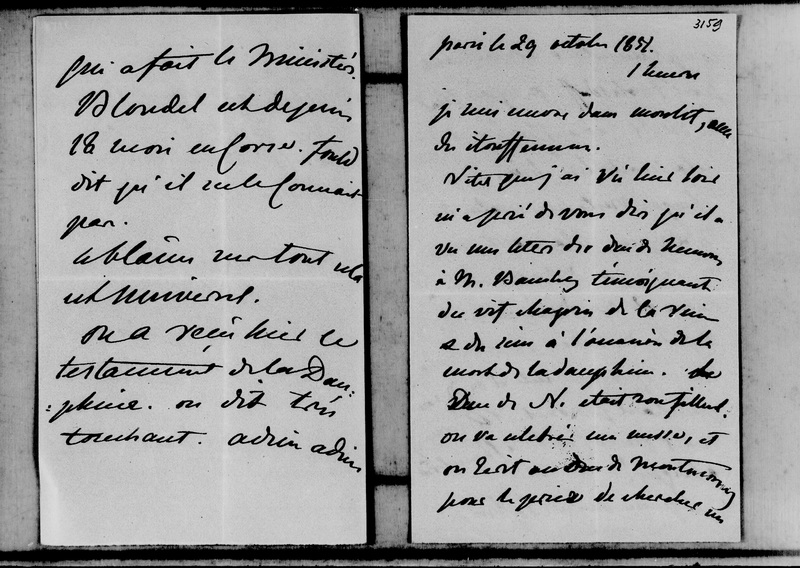 3159
paris le 29 octobre 1851.
1 heure
je suis encore dans mon lit, avec
des étouffements.
Vitet que j'ai vu hier soir
m'a prié de vous dire qu'il a
vu une lettre du duc de Nemours
à M. Bambey témoignant
du vif chagrin de la reine
& du sien à l'occasion de la
mort de la dauphine. la
Duc de N. était son filleul.
on va célébrer une messe, et
on écrit au Duc de Montmorency
pour le prier de chercher un
qui a fait le Ministère.
Blondel est depuis
18 mois en Corse. fould
dit qu'il ne le connait
pas.
le blâme sur tout cela
est universel.
on a reçu hier le
testament de la Dau-
-phine. on dit très
touchant. adieu adieu